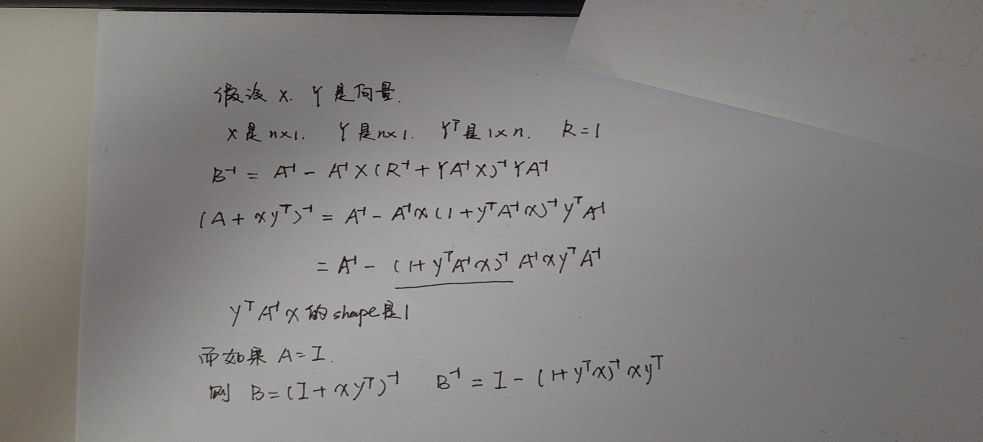 假设 x. Y 是向量.
x 是 n×1. Y 是 n×1. Yᵀ 是 1×n. R=1
B⁻¹ = A⁻¹ - A⁻¹X(R⁻¹+YA⁻¹X)⁻¹YA⁻¹
(A+xyᵀ)⁻¹ = A⁻¹ - A⁻¹x(1+yᵀA⁻¹x)⁻¹yᵀA⁻¹
= A⁻¹ - (1+yᵀA⁻¹x)⁻¹A⁻¹xyᵀA⁻¹
yᵀA⁻¹x 的 shape 是 1
而如果 A=I.
则 B=(I+xyᵀ)⁻¹ B⁻¹ = I - (1+yᵀx)⁻¹xyᵀ